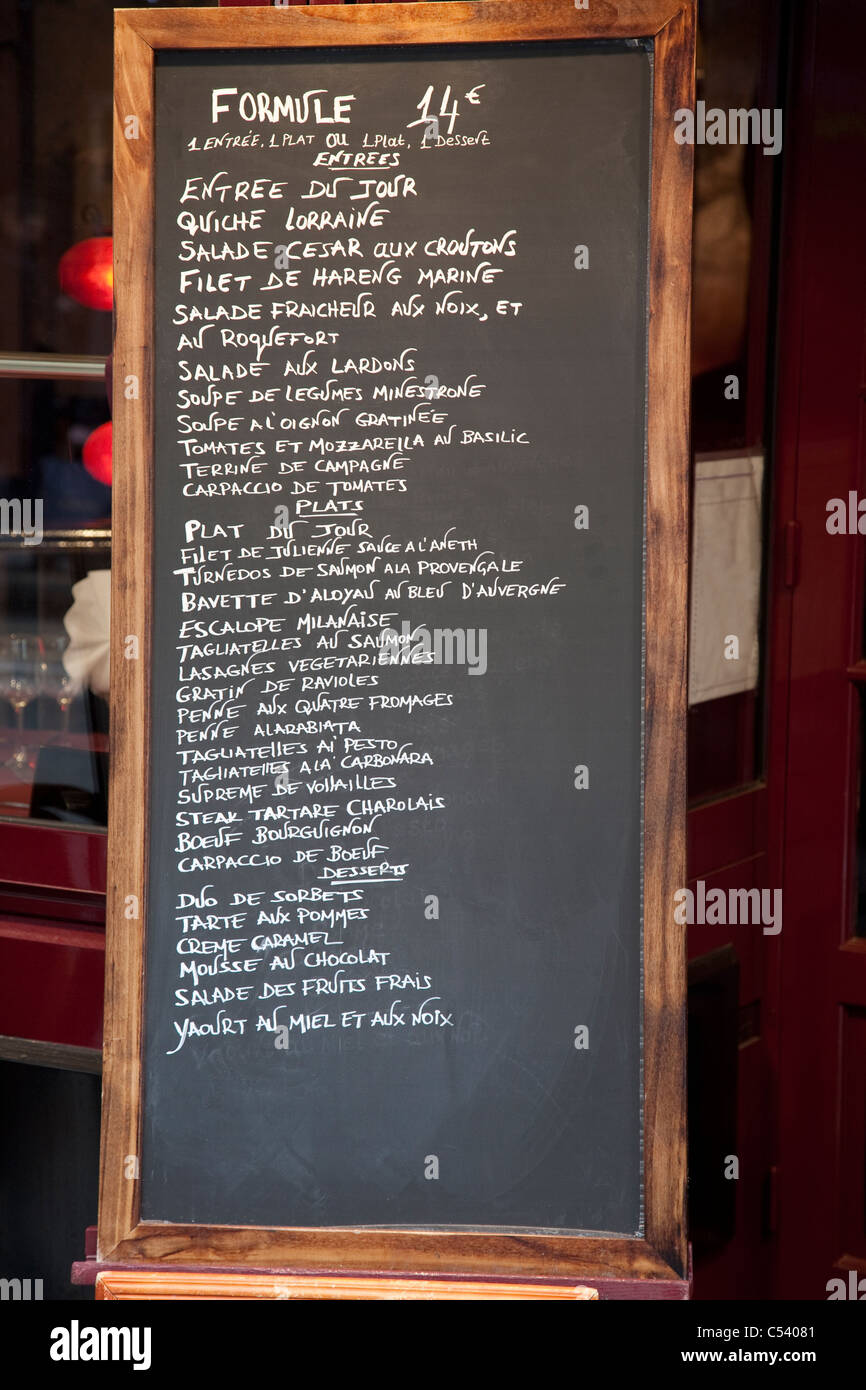 FORMULE 14€
1 ENTRÉE, 1 PLAT OU 1 Plat, 1 Dessert
ENTREES
ENTREE DU JOUR
QUICHE LORRAINE
SALADE CESAR AUX CROUTONS
FILET DE HARENG MARINE
SALADE FRAICHEUR AUX NOIX, ET
AU ROQUEFORT
SALADE AUX LARDONS
SOUPE DE LEGUMES MINESTRONE
SOUPE A L'OIGNON GRATINÉE
TOMATES ET MOZZARELLA AU BASILIC
TERRINE DE CAMPAGNE
CARPACCIO DE TOMATES
PLATS
PLAT DU JOUR
FILET DE JULIENNE SAUCE A L'ANETH
TURNEDOS DE SAUMON ALA PROVENGALE
BAVETTE D'ALOYAU AU BLEU D'AUVERGNE
ESCALOPE MILANAISE
TAGLIATELLES AU SAUMON
LASAGNES VEGETARIENNES
GRATIN DE RAVIOLES
PENNE AUX QUATRE FROMAGES
PENNE ALARABIATA
TAGLIATELLES AI PESTO
TAGLIATELLES A LA CARBONARA
SUPREME DE VOLLAILLES
STEAK TARTARE CHAROLAIS
BOEUF BOURGUIGNON
CARPACCIO DE BOEUF
DESSERTS
DUO DE SORBETS
TARTE AUX POMMES
CREME CARAMEL
MOUSSE AU CHOCOLAT
SALADE DES FRUITS FRAIS
YAOURT AU MIEL ET AUX NOIX
alamy
Image ID: C54081
www.alamy.com